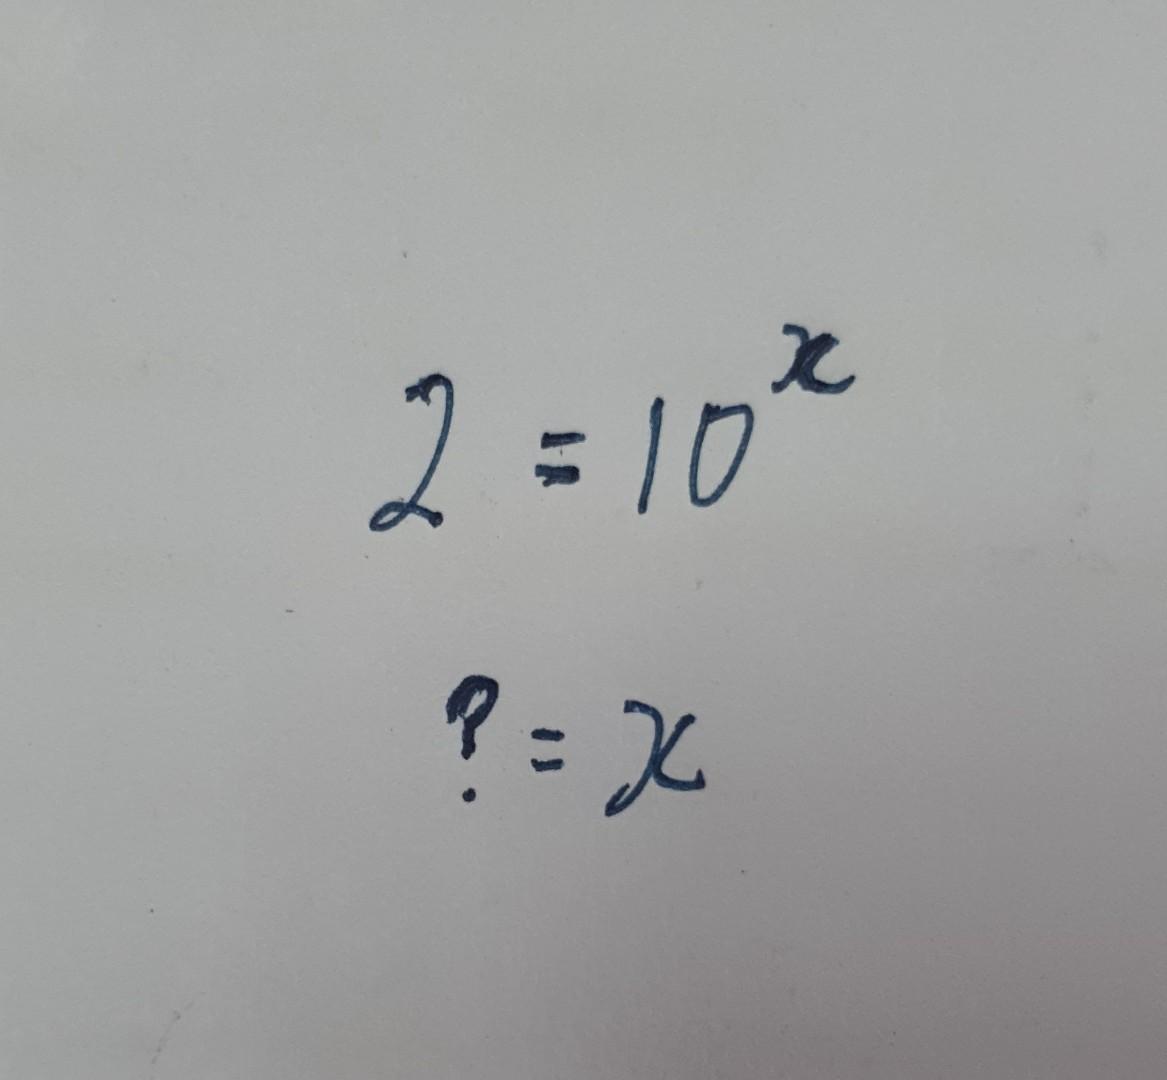 2 = 10^x
? = x